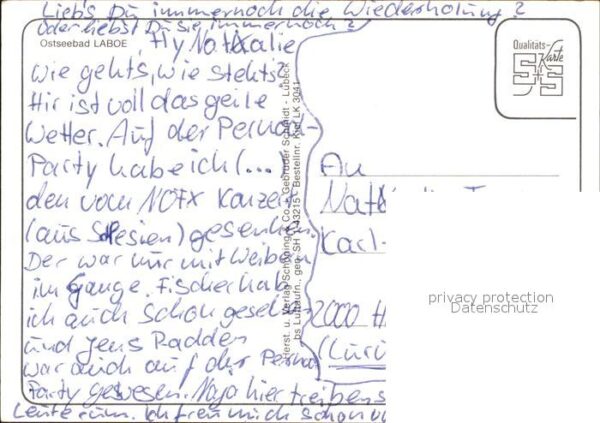 Liebst Du immernoch die Wiederholung?
oder liebst Du sie immernoch?
Ostseebad LABOE
Hy Nathalie
wie gehts, wie stehts
Hir ist voll das geile
Wetter. Auf der Pernod-
Party habe ich (...)
den vom NOFX Konzert
(aus Slesien) gesehen.
Der war nur mit Weibern
im Gange. Fischer hab
ich auch schon gesehen
und Jens Radder
war auch auf der Pernod
Party gewesen. Naja hier treibens
Leute rum. Ich freu mich schon
Herst. u. Verlag Schöning & Co + Gebrüder Schmidt - Lübeck
bs Luftaufn., geg. SH 1-43215 Bestellnr. Kiel LK 3041
Qualitäts-
Karte
S+S
An
Karl-
2000 H
privacy protection
Datenschutz